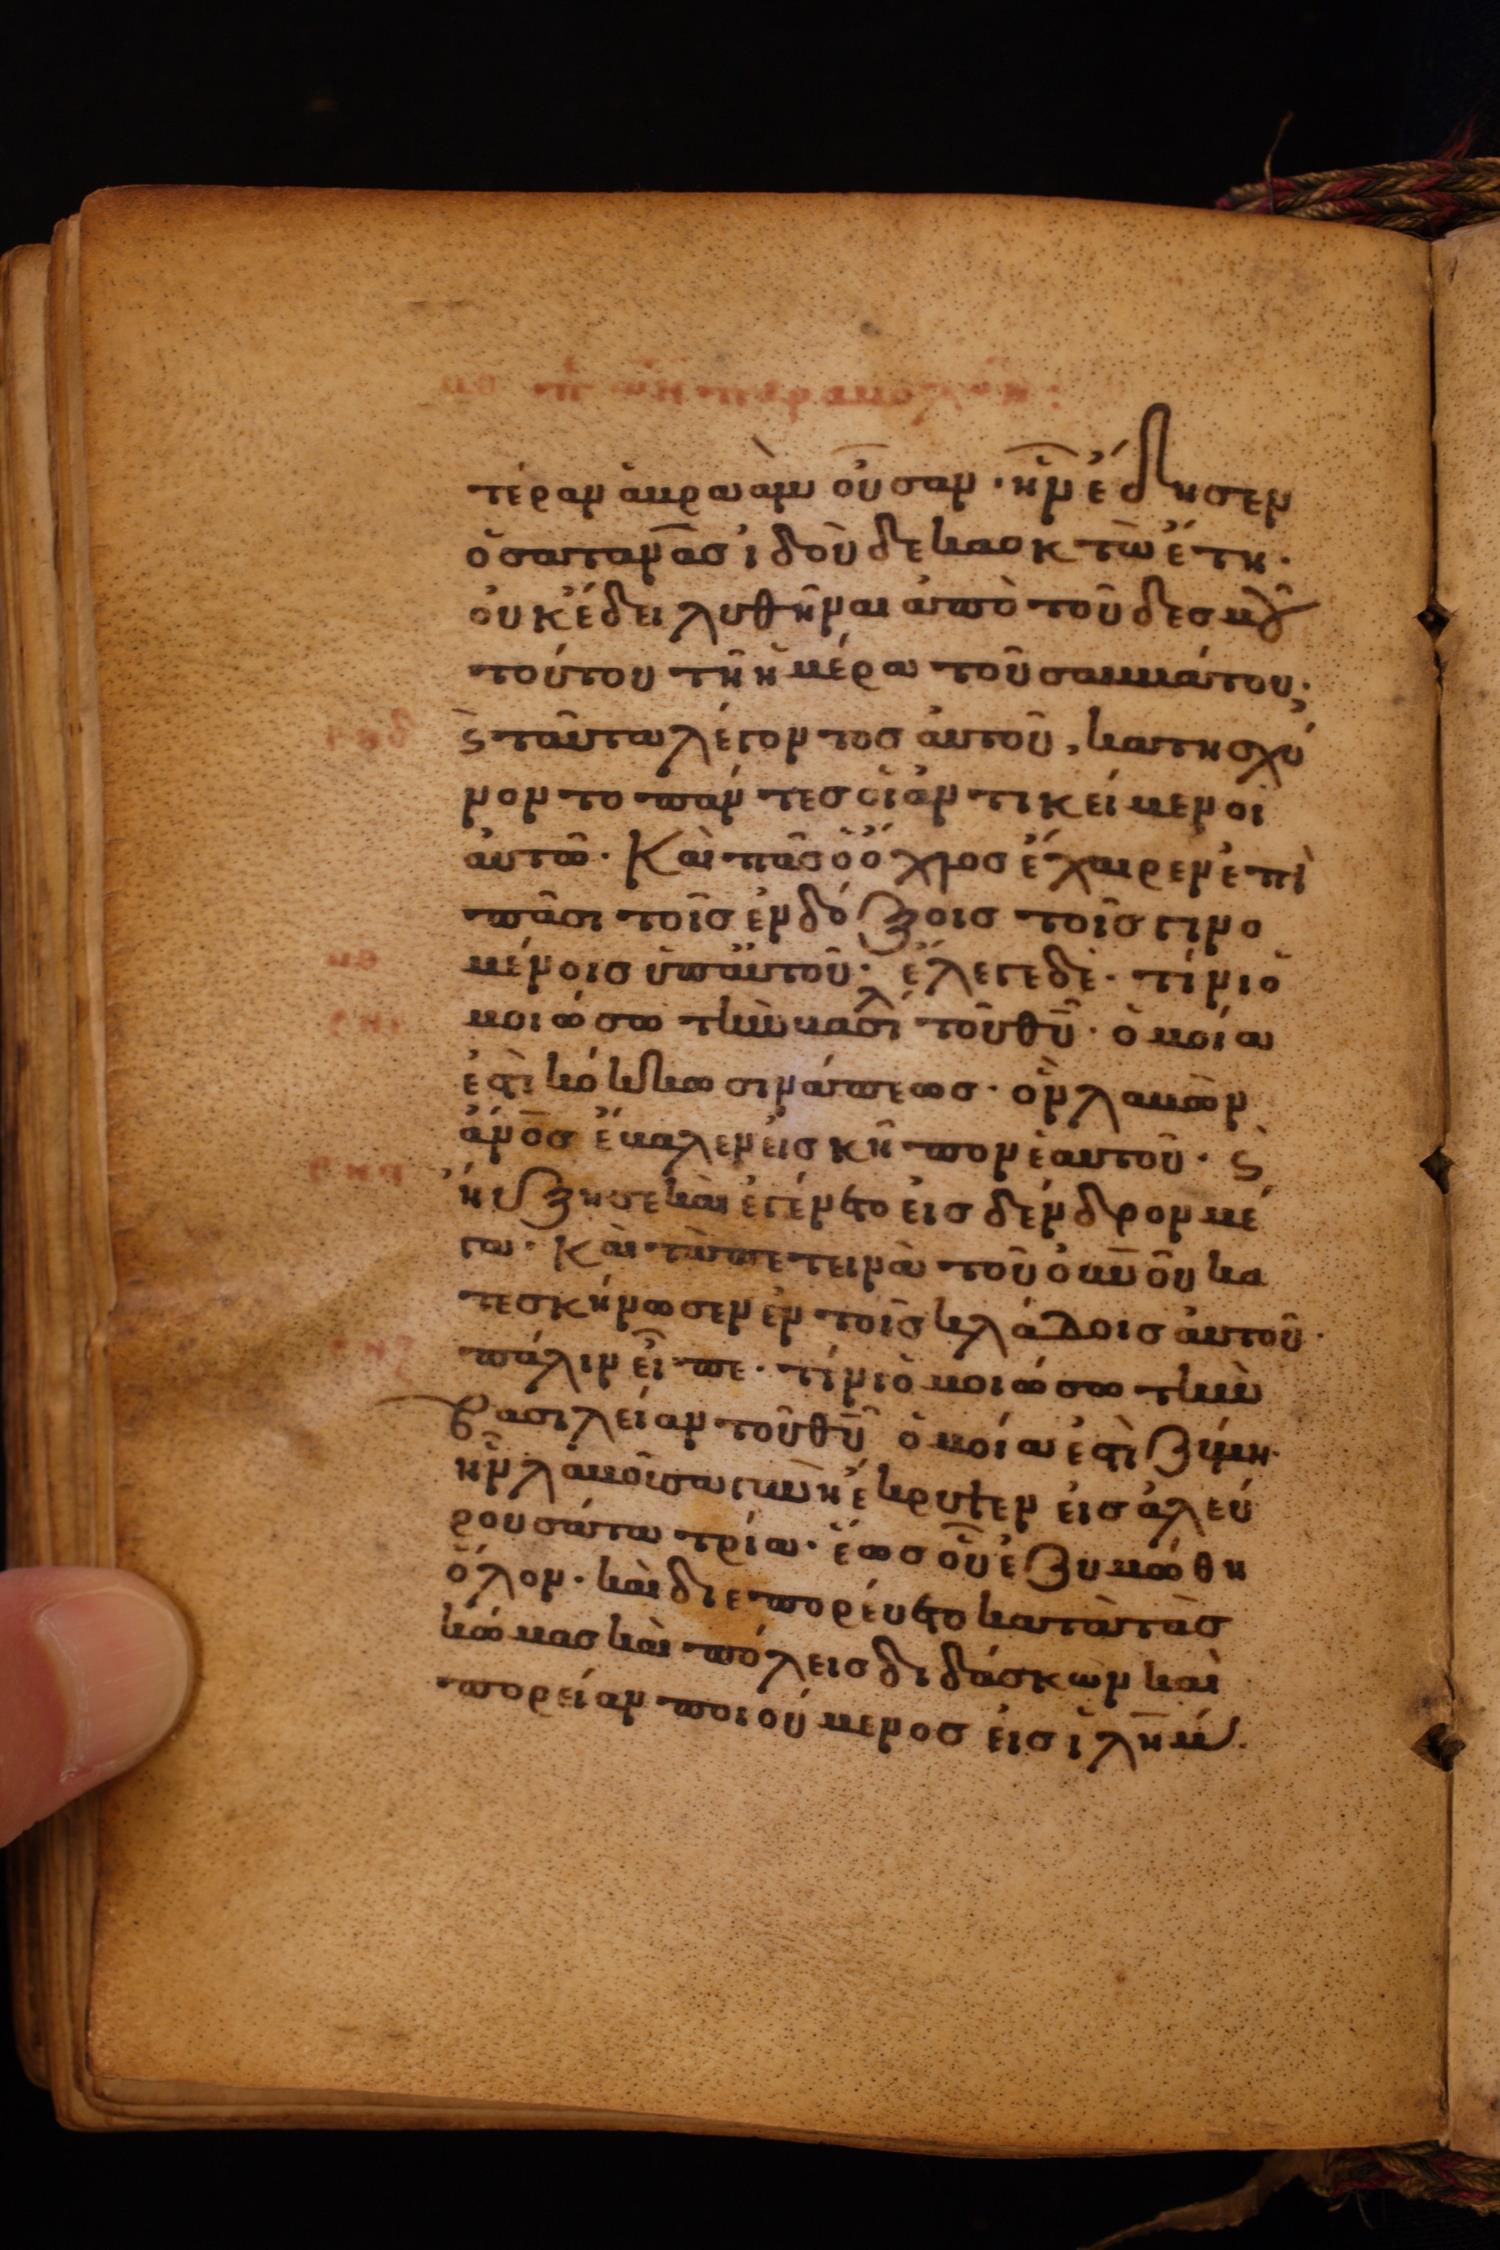 τέραν ἀβρααμ οὖσαν · ἣν ἔδησεν
ὁ σατανᾶσ ἰδοὺ δεκαοκτὼ ἔτη ·
οὐκ ἔδει λυθῆναι ἀπὸ τοῦ δεσμοῦ
τούτου τῆ ἡμέρα τοῦ σαββάτου;
ϛ ταῦτα λέγοντοσ ἀυτοῦ, κατησχύ
νοντο πάντεσ οἱ ἀντικείμενοι
ἀυτῶ · Καὶ πᾶσ ὁ ὄχλοσ ἔχαιρεν ἐπὶ
πᾶσι τοῖσ ἐνδόξοισ τοῖσ γινο
μένοισ ὑπ ἀυτοῦ · ἔλεγε δὲ · τίνι ὁ
μοιώσω τὴν βασιλ τοῦ θυ · ὁμοία
ἐστὶ κόκκω σινάπεωσ · ὃν λαβὼν
ἀνοσ ἔβαλεν εἰσ κῆπον ἑαυτοῦ · ϛ
ἠύξησε καὶ ἐγένετο εἰσ δένδρον μέ
γα · Καὶ τὰ πετεινὰ τοῦ ὀυνοῦ κα
τεσκήνωσεν ἐν τοῖσ κλάδοισ ἀυτοῦ ·
πάλιν εἶπε · τίνι ὁμοιώσω τὴν
βασιλείαν τοῦ θυ ὁμοία ἐστὶ ζύμη ·
ἣν λαβοῦσα γυνὴ ἔκρυψεν εἰσ ἀλεύ
ρου σάτα τρία · ἕωσ οὗ ἐζυμώθη
ὅλον · καὶ διεπορέυετο κατὰ τὰσ
κώμασ καὶ πόλεισ διδάσκων καὶ
πορείαν ποιούμενοσ εἰσ ιλημ ·